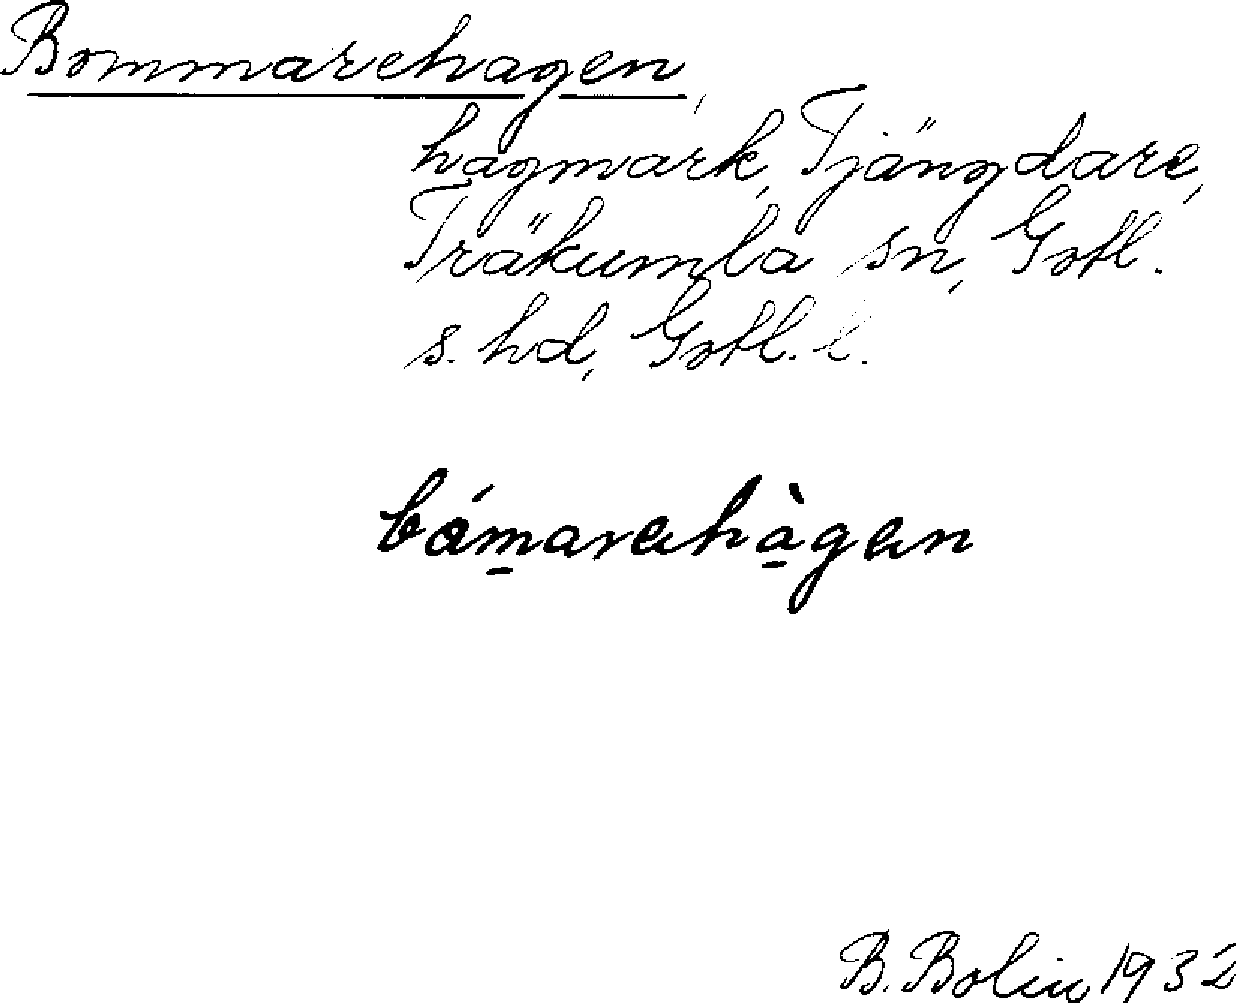 Bommarehagen,
hagmark, Tjängdare,
Träkumla sn, Gotl.
s. hd, Gotl. l.
bómarehàgen
B. Bolin 1932